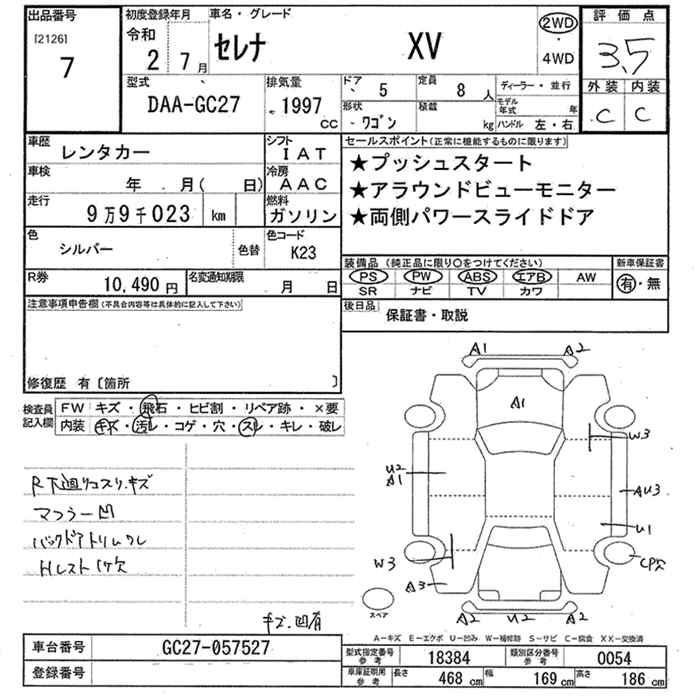 出品番号 初度登録年月 車名・グレード 2WD 評価点
[2126] 令和 セレナ XV 3.5
7 2 7月 4WD
型式 排気量 ドア 5 定員 8人 ディーラー・並行 外装 内装
DAA-GC27 1997 cc 形状 ワゴン 積載 kg モデル年式 年 C C
ハンドル 左・右
車歴 レンタカー シフト IAT セールスポイント(正常に機能するものに限ります)
車検 年 月( 日) 冷房 AAC ★プッシュスタート
走行 9万9千023 km 燃料 ガソリン ★アラウンドビューモニター
★両側パワースライドドア
色 シルバー 色替 色コード K23
装備品(純正品に限り○をつけてください) 新車保証書
R券 10,490円 名変通知期限 月 日 PS PW ABS エアB AW 有・無
SR ナビ TV カワ
注意事項申告欄(不具合内容等は具体的に記入して下さい) 後日品 保証書・取説
修復歴 有〔箇所 〕
検査員記入欄 FW キズ・飛石・ヒビ割・リペア跡・×要
内装 キズ・汚レ・コゲ・穴・スレ・キレ・破レ
A1 A2
A1
W3
U2
A1
AU3
U1
R下廻リコスリ.キズ
マフラー凹
バックドアトリムワレ
Hレスト1ケ穴
W3
CP欠
A3
スペア
A2 U2 A2
キズ.凹有
A−キズ E−エクボ U−凹み W−補修跡 S−サビ C−腐食 XX−交換済
車台番号 GC27-057527 型式指定番号 参考 18384 類別区分番号 参考 0054
登録番号 車庫証明用 参考 長さ 468 cm 幅 169 cm 高さ 186 cm